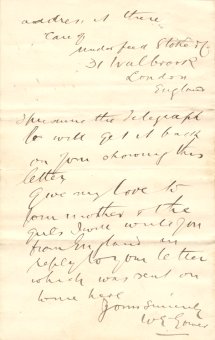 address it there
care of
Underfeed Stoker Co
31 Walbrook
London
England
I presume the Telegraph
Co will get it back
on your showing this
letter
Give my love to
your mother & the
girls I will write you
from England in
reply to your letter
which was sent on
home here
Yours Sincerely
W E